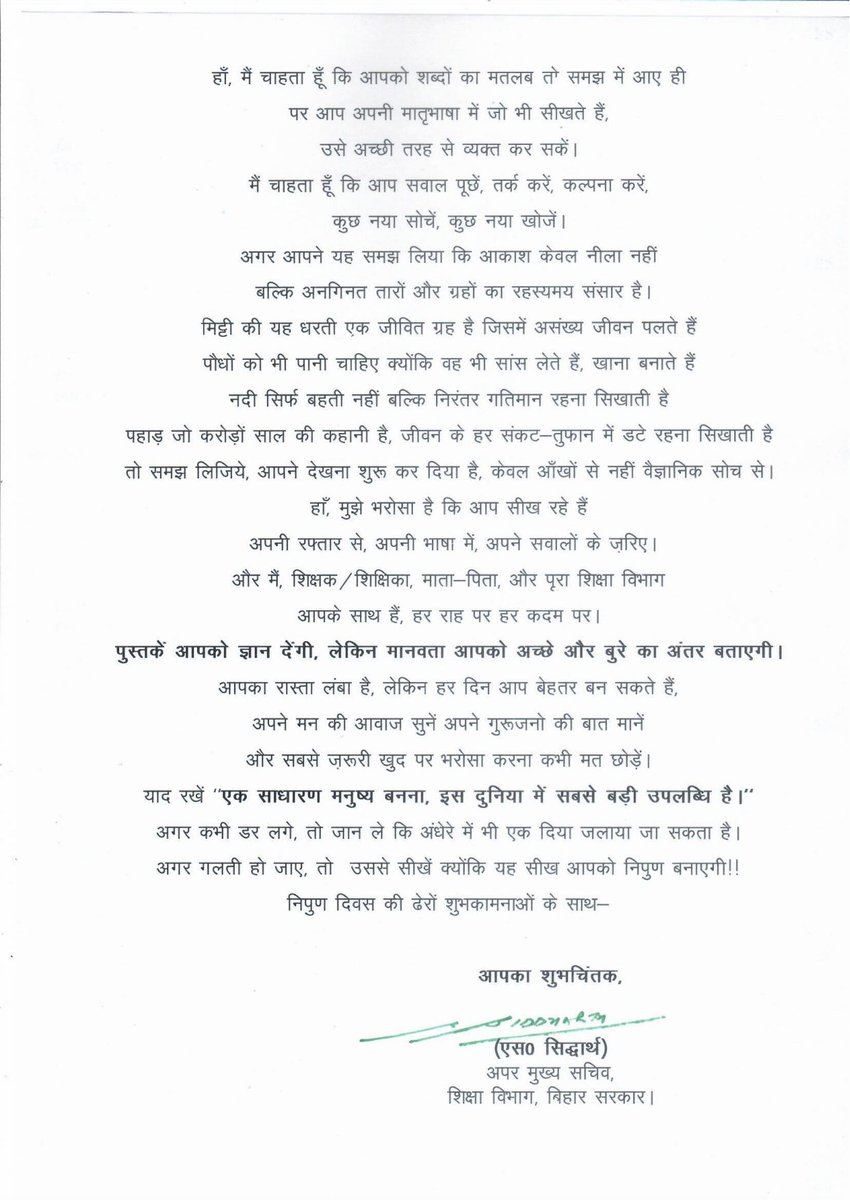 हाँ, मैं चाहता हूँ कि आपको शब्दों का मतलब तो समझ में आए ही
पर आप अपनी मातृभाषा में जो भी सीखते हैं,
उसे अच्छी तरह से व्यक्त कर सकें।
मैं चाहता हूँ कि आप सवाल पूछें, तर्क करें, कल्पना करें,
कुछ नया सोचें, कुछ नया खोजें।
अगर आपने यह समझ लिया कि आकाश केवल नीला नहीं
बल्कि अनगिनत तारों और ग्रहों का रहस्यमय संसार है।
मिट्टी की यह धरती एक जीवित ग्रह है जिसमें असंख्य जीवन पलते हैं
पौधों को भी पानी चाहिए क्योंकि वह भी सांस लेते हैं, खाना बनाते हैं
नदी सिर्फ बहती नहीं बल्कि निरंतर गतिमान रहना सिखाती है
पहाड़ जो करोड़ों साल की कहानी है, जीवन के हर संकट–तुफान में डटे रहना सिखाती है
तो समझ लिजिये, आपने देखना शुरू कर दिया है, केवल आँखों से नहीं वैज्ञानिक सोच से।
हाँ, मुझे भरोसा है कि आप सीख रहे हैं
अपनी रफ्तार से, अपनी भाषा में, अपने सवालों के ज़रिए।
और मैं, शिक्षक/शिक्षिका, माता–पिता, और पूरा शिक्षा विभाग
आपके साथ हैं, हर राह पर हर कदम पर।
पुस्तकें आपको ज्ञान देंगी, लेकिन मानवता आपको अच्छे और बुरे का अंतर बताएगी।
आपका रास्ता लंबा है, लेकिन हर दिन आप बेहतर बन सकते हैं,
अपने मन की आवाज सुनें अपने गुरूजनो की बात मानें
और सबसे ज़रूरी खुद पर भरोसा करना कभी मत छोड़ें।
याद रखें "एक साधारण मनुष्य बनना, इस दुनिया में सबसे बड़ी उपलब्धि है।"
अगर कभी डर लगे, तो जान ले कि अंधेरे में भी एक दिया जलाया जा सकता है।
अगर गलती हो जाए, तो उससे सीखें क्योंकि यह सीख आपको निपुण बनाएगी!!
निपुण दिवस की ढेरों शुभकामनाओं के साथ–
आपका शुभचिंतक,
SIDDHARTH
(एस0 सिद्धार्थ)
अपर मुख्य सचिव,
शिक्षा विभाग, बिहार सरकार।